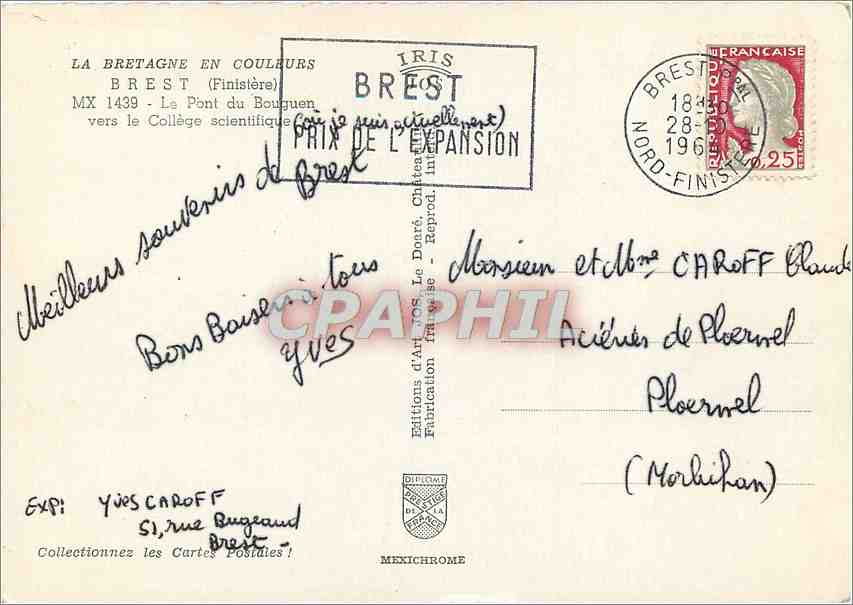 LA BRETAGNE EN COULEURS
BREST (Finistère)
MX 1439 - Le Pont du Bouguen
vers le Collège scientifique
IRIS
JOS
BREST
(où je suis actuellement)
PRIX DE L'EXPANSION
BREST PPAL
18H30
28-10
NORD-FINISTERE
REPUBLIQUE FRANÇAISE
POSTES
0,25
Meilleurs souvenirs de Brest
Bons Baisers à tous
Yves
Editions d'Art JOS, Le Doaré,
Fabrication française - Reprod. inter
Monsieur et Mme CAROFF Claude
Aciéries de Ploermel
Ploermel
(Morbihan)
CPAPHIL
EXP: Yves CAROFF
51, rue Bugeaud
Brest -
Collectionnez les Cartes Postales !
DIPLOME
PRESTIGE
DE LA
FRANCE
MEXICHROME